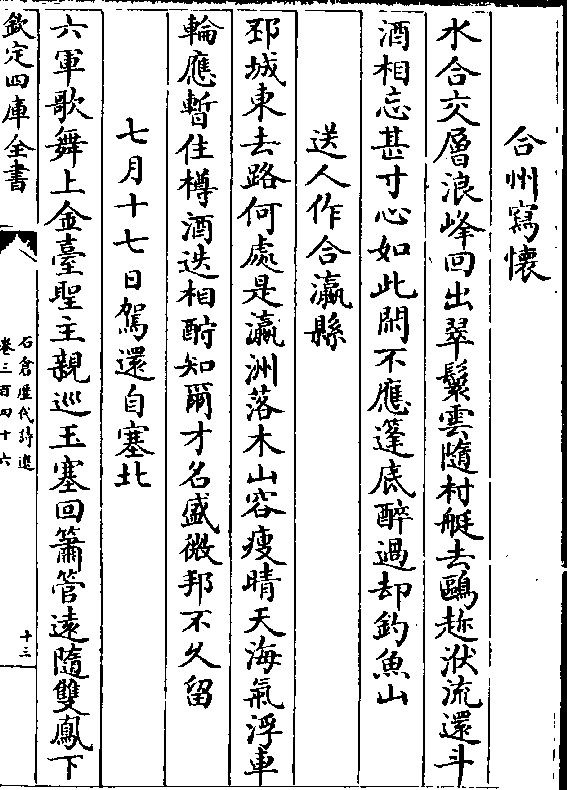 合州寫懷
水合交層浪峰回出翠鬟雲隨村艇去鷗趂洑流還斗
酒相忘甚寸心如此閑不應蓬底醉過却釣魚山
送人作合瀛縣
邳城東去路何處是瀛洲落木山容瘦晴天海氣浮車
輪應暫住樽酒迭相酧知爾才名盛微邦不久留
七月十七日駕還自塞北
六軍歌舞上金臺聖主親巡玉塞回簫管遠隨雙鳳下
欽定四庫全書
石倉歷代詩選
卷三百四十六
十三